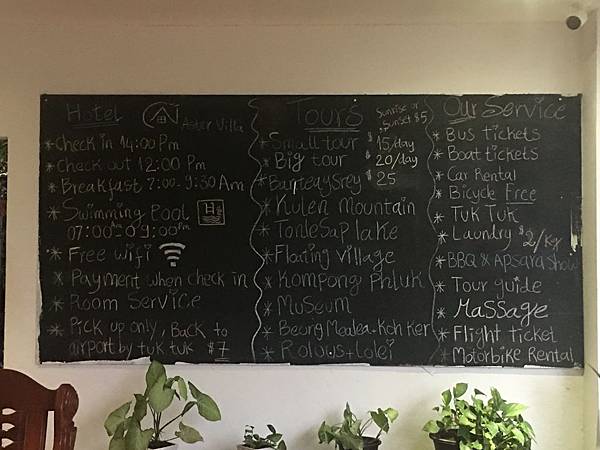 Hotel
Aster Villa
* Check in 14:00 Pm
* Check out 12:00 Pm
* Breakfast 7:00-9:30 Am
* Swimming Pool
07:00 Am 9:00 Pm
* Free wifi
* Payment when check in
* Room Service
* Pick up only, Back to
airport by tuk tuk $7
Tours
Sunrise or
Sunset $5
* Small tour $15/day
* Big tour $20/day
* Banteay Srey $25
* Kulen Mountain
* Tonle Sap lake
* Floating village
* Kompong Phluk
* Museum
* Beong Mealea-Koh ker
* Rolous+Lolei
Our Service
* Bus tickets
* Boat tickets
* Car Rental
* Bicycle Free
* Tuk Tuk
* Laundry $2/kg
* BBQ & Apsara Show
* Tour guide
* Massage
* Flight ticket
* Motorbike Rental